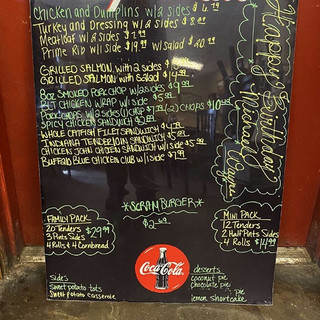 Chicken and Dumplins w/2 sides $
Turkey and Dressing w/2 sides $
Meatloaf w/2 sides $
Prime Rib w/1 side $19.99 w/salad $20.99
Grilled Salmon with 2 sides
Grilled Salmon with salad $14.99
8oz Smoked Porkchop w/2 sides
BLT Chicken Wrap w/1 side
Porkchops w/2 sides (1) chop (2) chops $10
Spicy Chicken Sandwich
Whole Catfish Filet Sandwich
Indiana Tenderloin Sandwich
Chicken John Chicken Sandwich w/1 side
Buffalo Blue Chicken Club w/1 side $7.99
Happy Birthday
Michael Wayne
*Scram Burger*
$2.69
Family Pack
20 Tenders
3 Pints Sides $29.99
4 Rolls & 4 Cornbread
Mini Pack
12 Tenders
2 Half Pints Sides
4 Rolls $14.99
Coca-Cola
sides
sweet potato tots
sweet potato casserole
desserts
coconut pie
chocolate pie
lemon shortcake